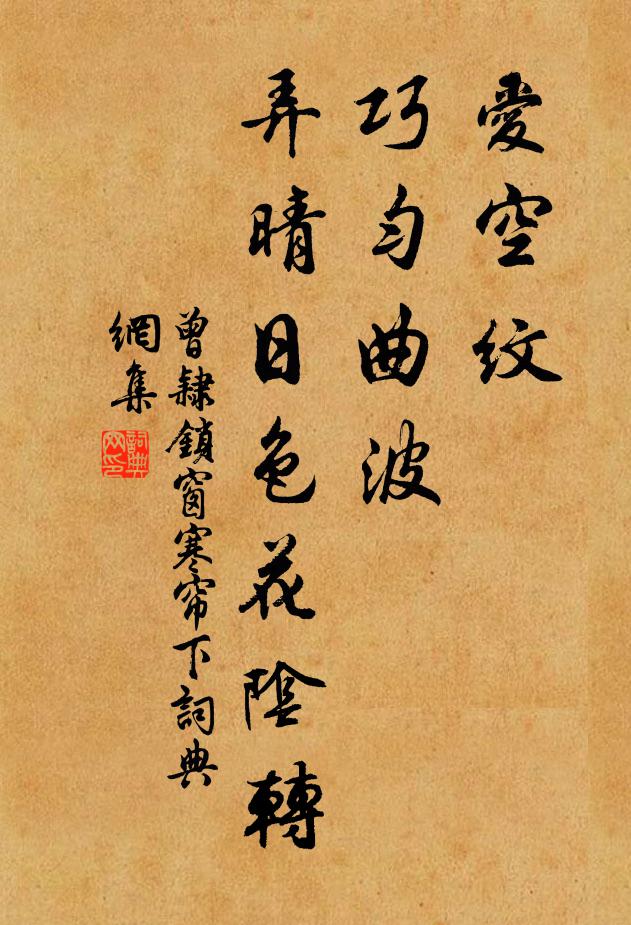 愛空紋
巧匀曲波
弄晴日色花陰轉
曾隸鎖窗寒帘下詞典
網集
詞典
网印